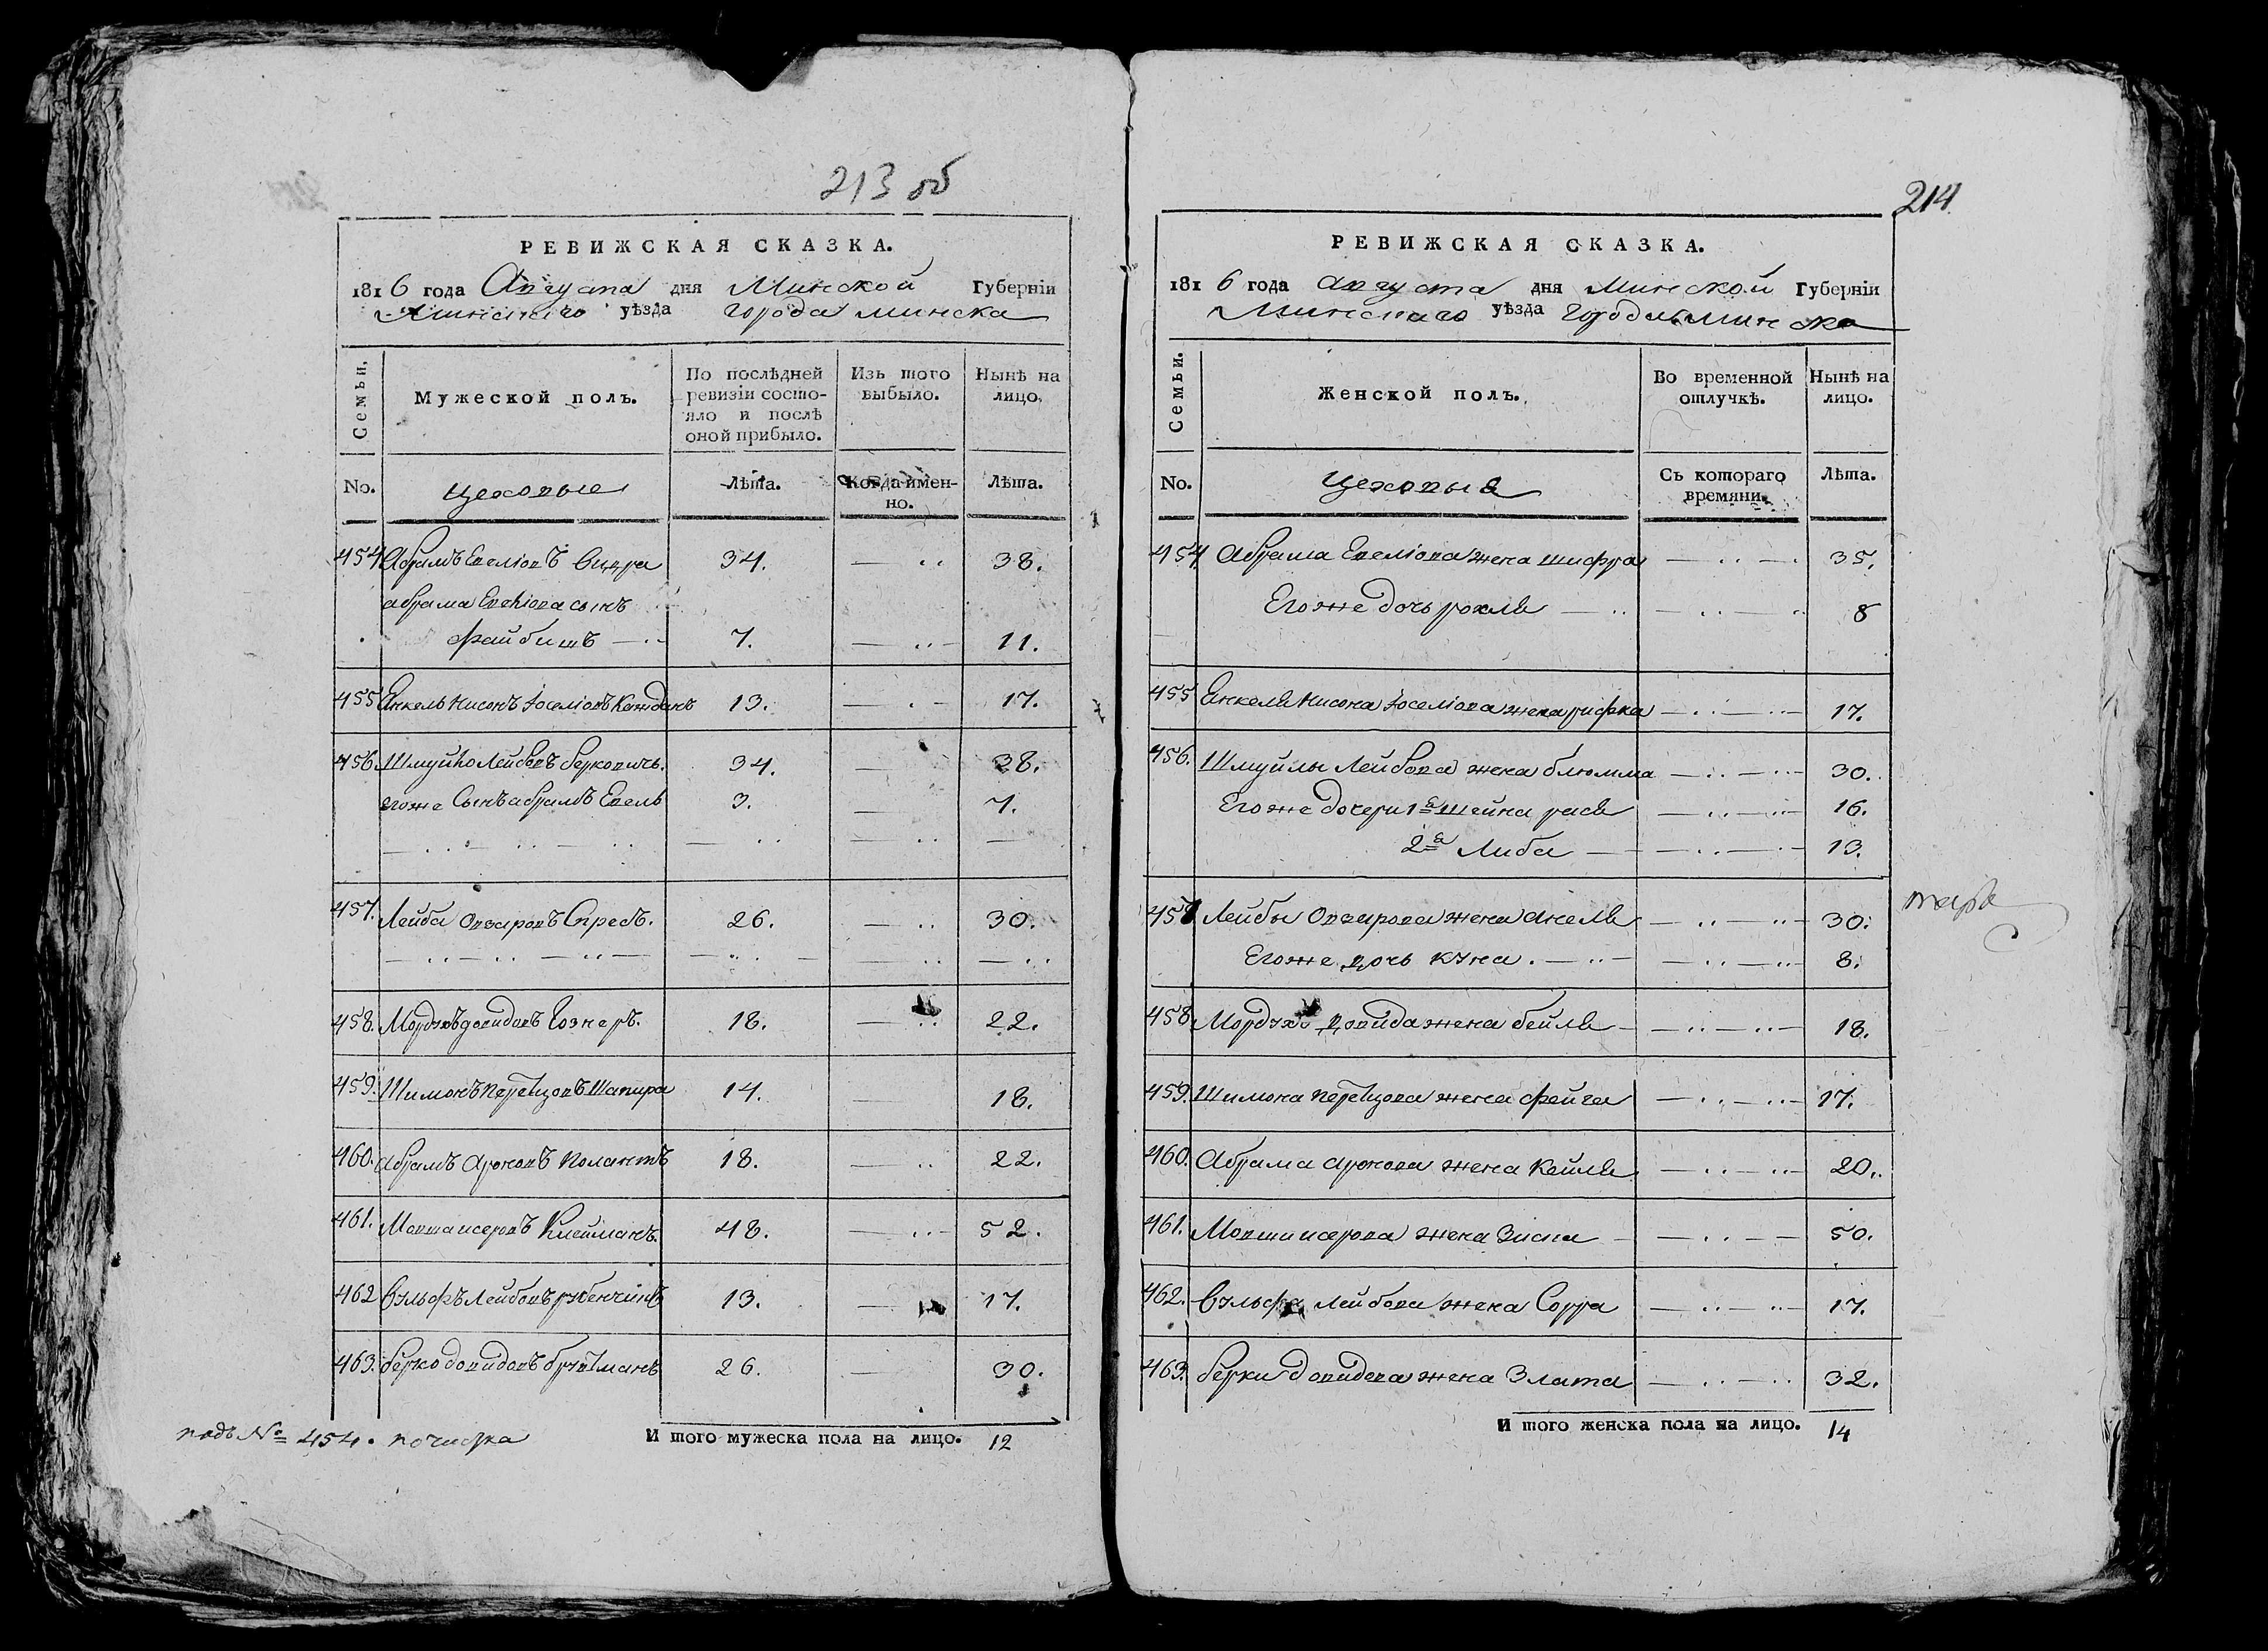 213 об
РЕВИЖСКАЯ СКАЗКА.
1816 года Августа дня Минской Губерніи
Минскаго уѣзда города Минска
Семьи. Мужеской полъ. По послѣдней ревизіи состояло и послѣ оной прибыло. Изъ того выбыло. Нынѣ на лицо.
No. цеховые Лѣта. Когда имен-но. Лѣта.
454 Абрамъ Евеліовъ 34. 38.
абрама Евеліова сынъ
файбишъ 7. 11.
455 Енкель Нисонъ Іоселіовъ Кажданъ 13. 17.
456. Шмуйло Лейбовъ берковичъ. 34. 38.
егоже Сынъ абрамъ Евель 3. 7.
457. Лейба Овзаровъ Спресъ. 26. 30.
458. Мордухъ довидовъ Гознеръ. 18. 22.
459. Шимонъ перецовъ Шапира 14. 18.
460. абрамъ ароновъ полантъ 18. 22.
461. Мовша исеровъ Клейманъ. 48. 52.
462 Вульфъ Лейбовъ рубенчикъ 13. 17.
463. берко довидовъ брутманъ 26. 30.
И того мужеска пола на лицо. 12
подъ № 454. почистка
214
РЕВИЖСКАЯ СКАЗКА.
1816 года августа дня Минской Губерніи
Минскаго уѣзда Города Минска
Семьи. Женской полъ. Во временной отлучкѣ. Нынѣ на лицо.
No. цеховыя Съ котораго времяни. Лѣта.
454 абрама Евеліова жена шифра 35.
Егоже дочь рохля 8
455 Енкеля Нисона Іоселіова жена рифка 17.
456. Шмуйлы Лейбова жена блюмма 30.
Егоже дочери 1я Шейна рася 16.
2я Либа 13.
457 Лейбы Овзарова жена анеля 30.
Егоже дочь куна. 8.
458 Мордуха довида жена бейля 18.
459. Шимона перецова жена фейга 17.
460. абрама аронова жена Кейля 20.
461. Мовши исерова жена Зисна 50.
462. Вульфа лейбова жена Сорра 17.
463. берки довидова жена Злата 32.
И того женска пола на лицо. 14